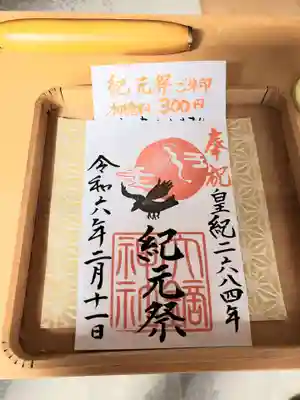 紀元祭ご朱印
初穂料 300円
奉祝
皇紀二六八四年
紀元祭
令和六年二月十一日
神社